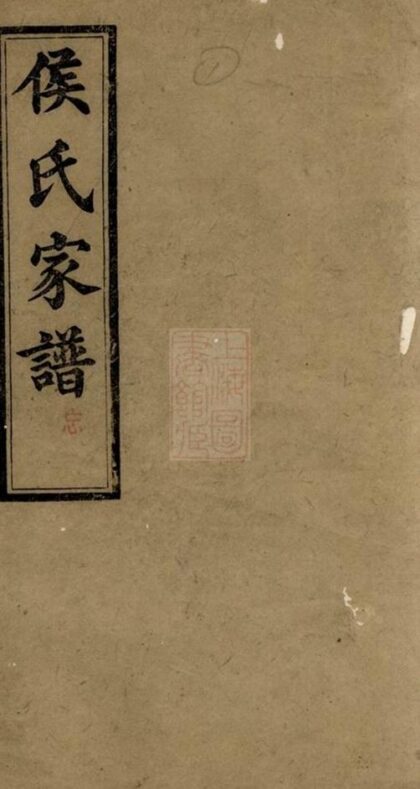 侯氏家譜
忠
上海圖
書館藏